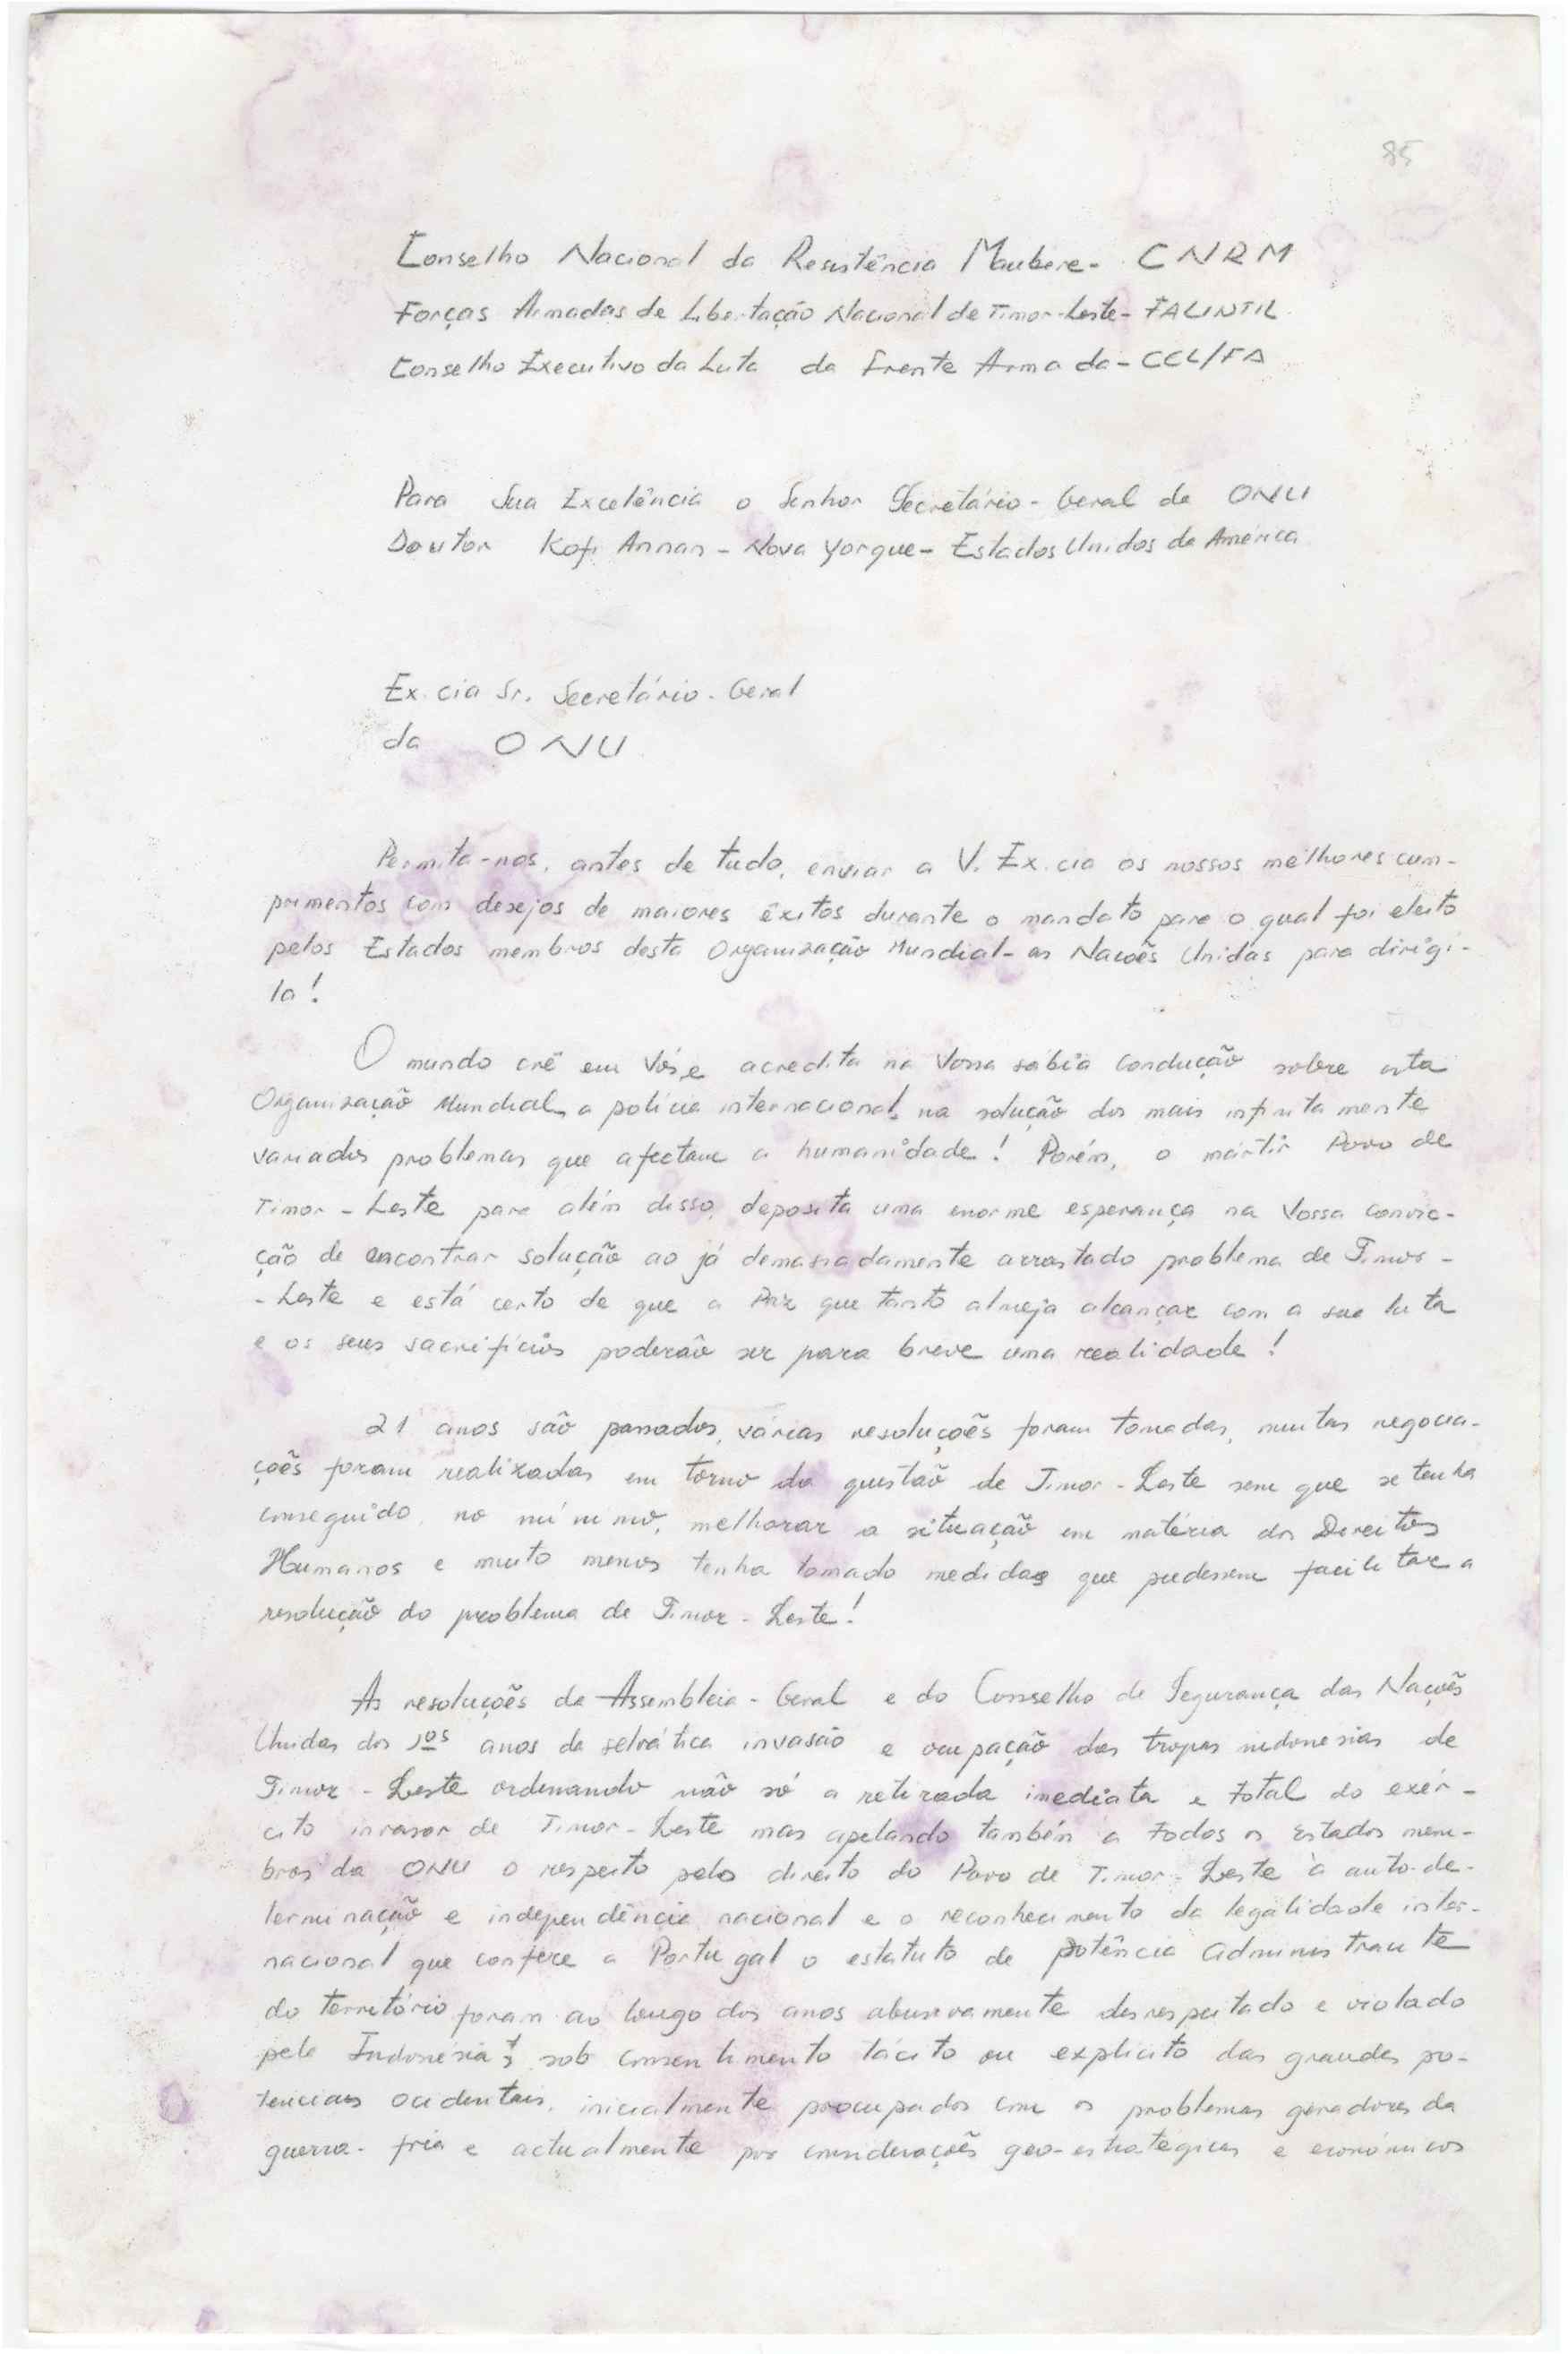 85
Conselho Nacional da Resistência Maubere- CNRM
Forças Armadas de Libertação Nacional de Timor-Leste- FALINTIL
Conselho Executivo da Luta da Frente Armada- CEL/FA
Para Sua Excelência o Senhor Secretário-Geral da ONU
Doutor Kofi Annan - Nova Yorque- Estados Unidos da América
Ex.cia Sr. Secretário-Geral
da ONU
Permita-nos, antes de tudo, enviar a V. Ex.cia os nossos melhores cum-
primentos com desejos de maiores êxitos durante o mandato para o qual foi eleito
pelos Estados membros desta Organização Mundial- as Nações Unidas para dirigi-
la!
O mundo crê em Vós e acredita na Vossa sábia condução sobre esta
Organização Mundial, a polícia internacional, na solução dos mais infinitamente
variados problemas que afectam a humanidade! Porém, o mártir Povo de
Timor-Leste para além disso, deposita uma enorme esperança na Vossa convic-
ção de encontrar solução ao já demasiadamente arrastado problema de Timor-
-Leste e está certo de que a Paz que tanto almeja alcançar com a sua luta
e os seus sacrifícios poderão ser para breve uma realidade!
21 anos são passados, várias resoluções foram tomadas, muitas negocia-
ções foram realizadas em torno da questão de Timor-Leste sem que se tenha
conseguido, no mínimo, melhorar a situação em matéria dos Direitos
Humanos e muito menos tenha tomado medidas que pudessem facilitar a
resolução do problema de Timor-Leste!
As resoluções da Assembleia-Geral e do Conselho de Segurança das Nações
Unidas dos 1os anos da selvática invasão e ocupação das tropas indonésias de
Timor-Leste ordenando não só a retirada imediata e total do exér-
cito invasor de Timor-Leste mas apelando também a todos os Estados mem-
bros da ONU o respeito pelo direito do Povo de Timor-Leste à auto-de-
terminação e independência nacional e o reconhecimento da legalidade inter-
nacional que confere a Portugal o estatuto de potência administrante
do território foram ao longo dos anos abusivamente desrespeitado e violado
pela Indonésia, sob consentimento tácito ou explícito das grandes po-
tências ocidentais, inicialmente preocupados com os problemas geradores da
guerra-fria e actualmente por considerações geo-estratégicas e económicos